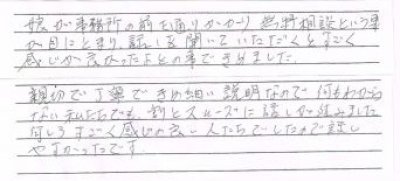 娘が事務所の前を通りかかり無料相談という事
が目にとまり、話しを聞いていただくとすごく
感じが良かったよとの事できめました。
親切で丁寧できめ細い説明なので何もわから
ない私たちでも、割とスムーズに話しが組みました
何しろすごく感じの良い人たちでしたので話し
やすかったです。